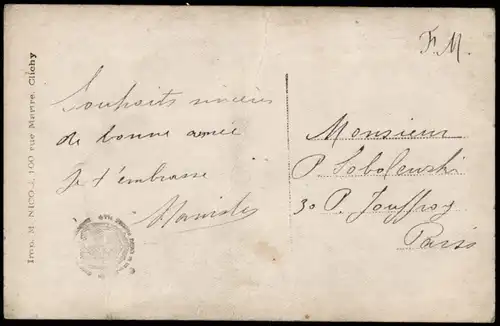 F.M.
Souhaits sincères
de bonne année
Je t'embrasse
Stanislas
Monsieur
P. Sobolewski
30 P. Jouffroy
Paris
Imp. M. NICOLE, 100 rue Martre. Clichy